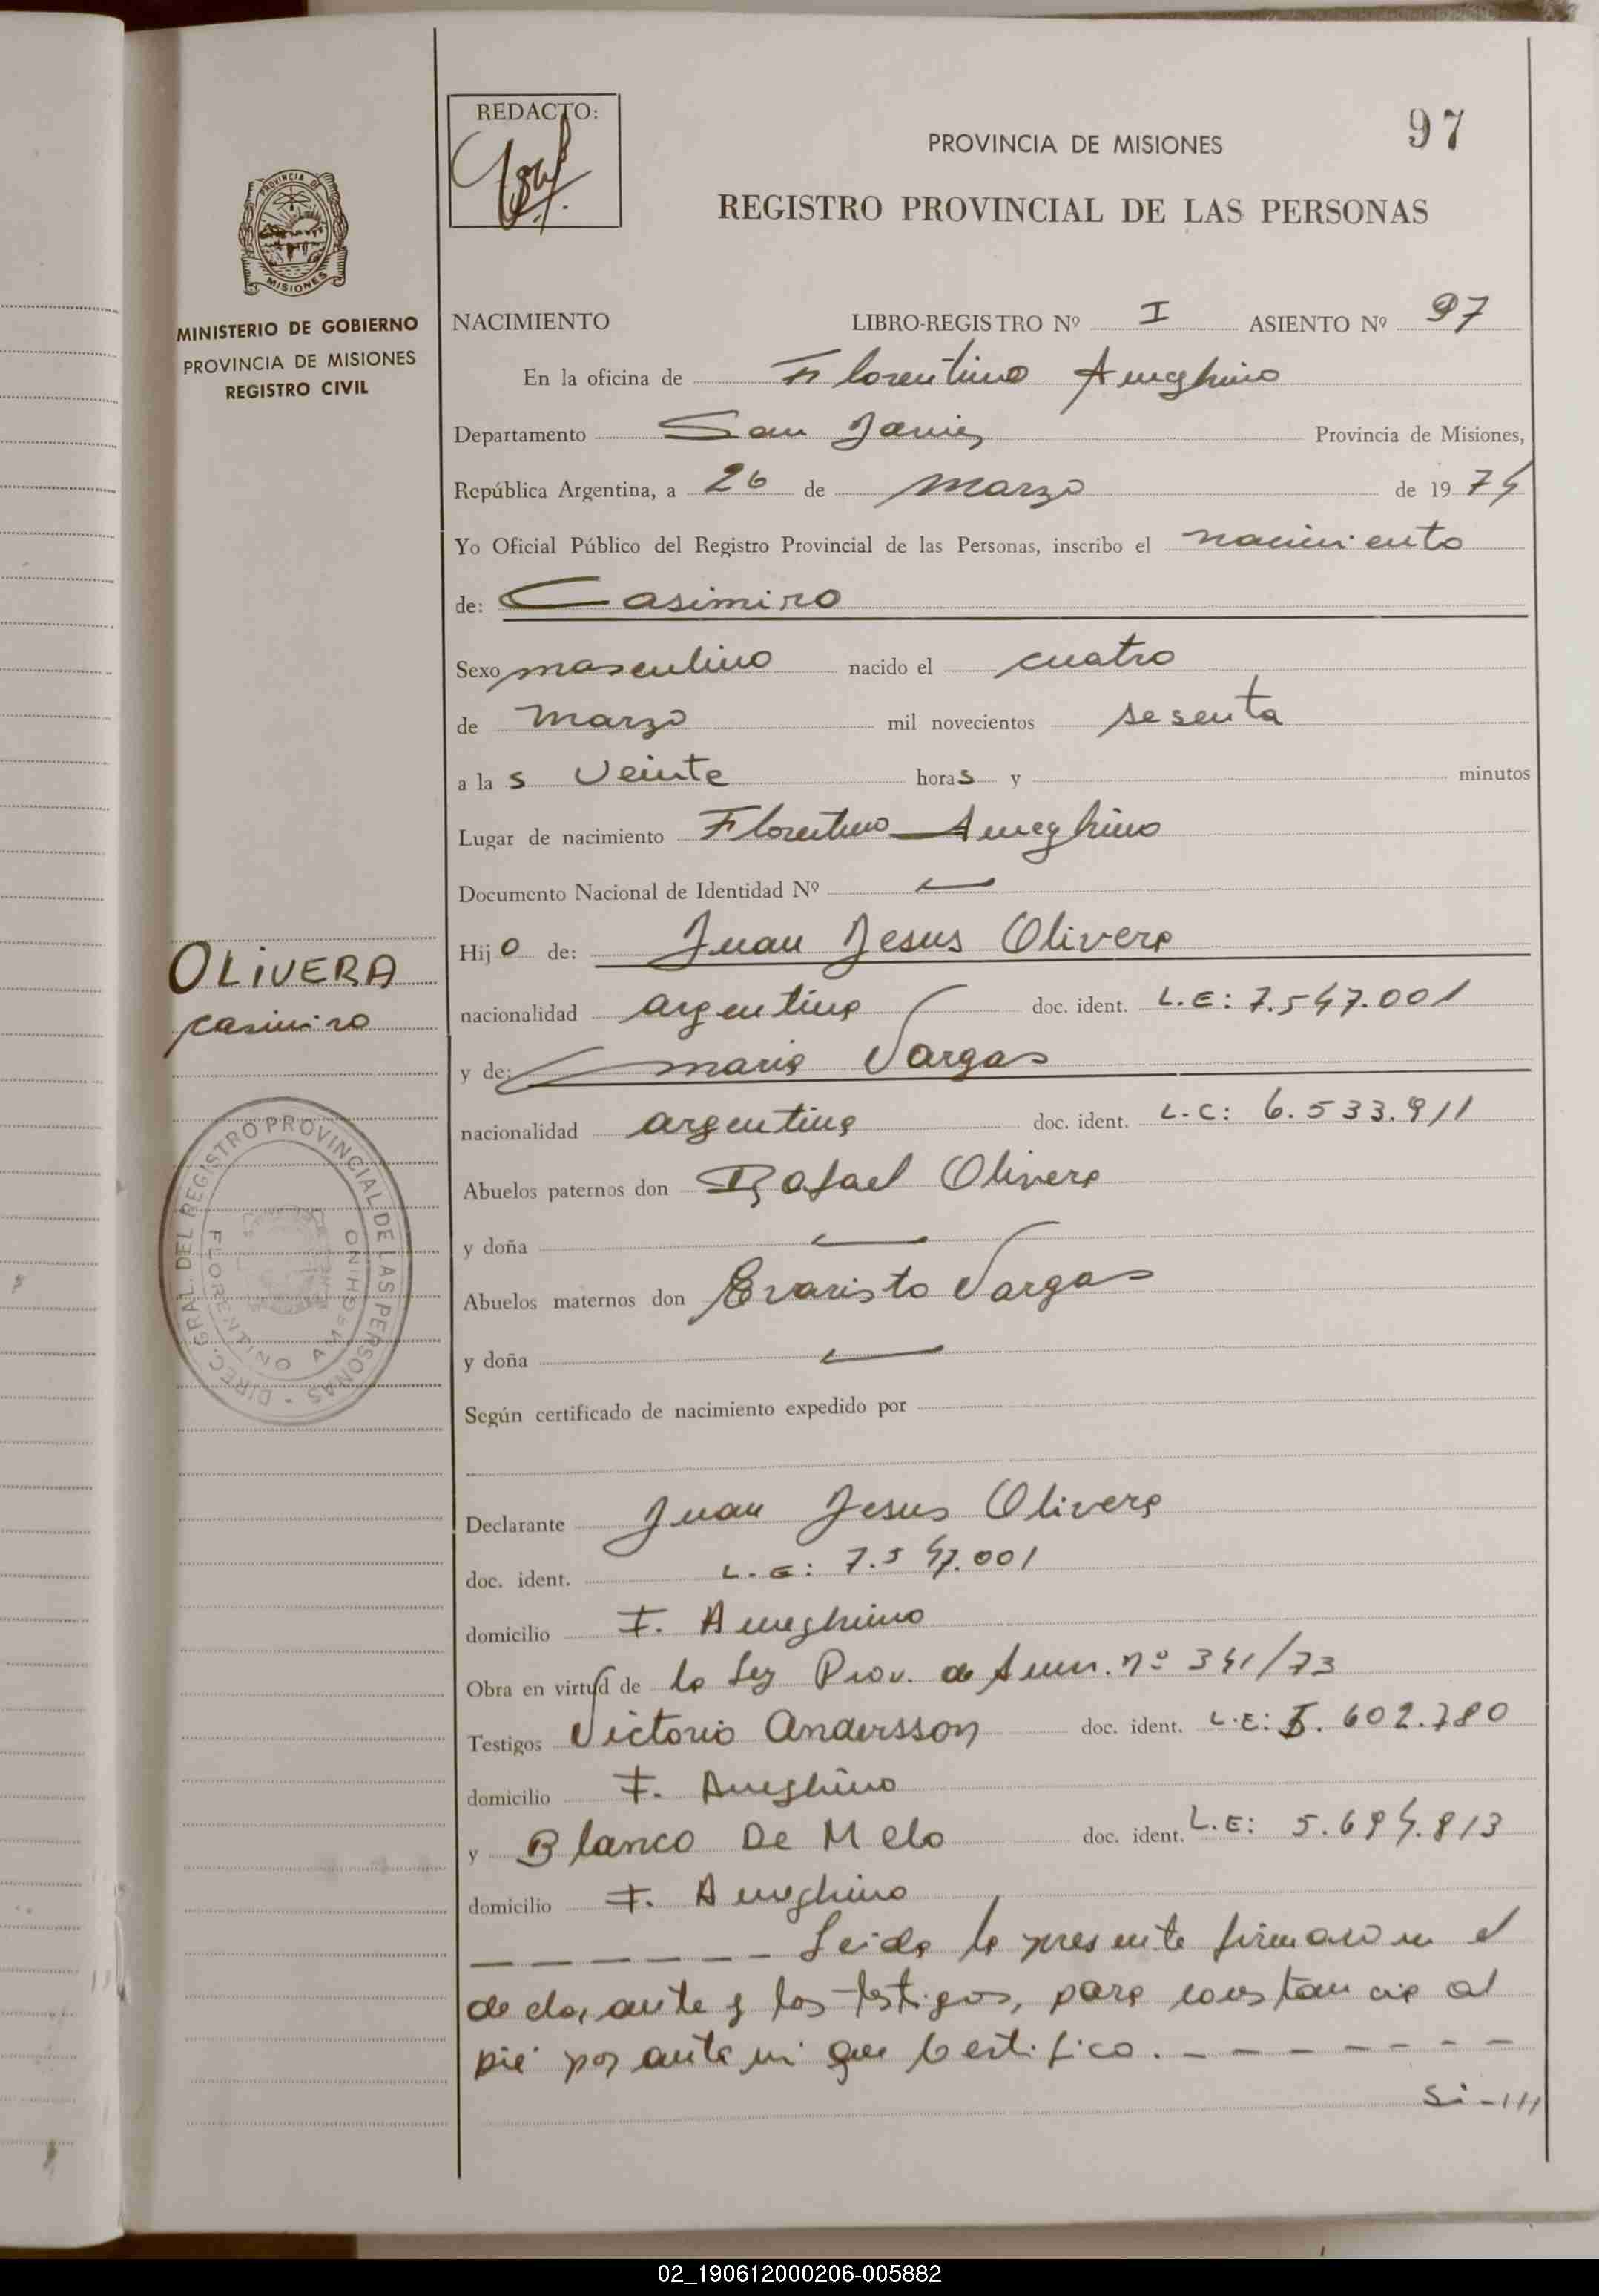 REDACTO:
97
PROVINCIA DE MISIONES
REGISTRO PROVINCIAL DE LAS PERSONAS
PROVINCIA DE
MISIONES
MINISTERIO DE GOBIERNO
PROVINCIA DE MISIONES
REGISTRO CIVIL
NACIMIENTO LIBRO-REGISTRO Nº I ASIENTO Nº 97
En la oficina de Florentino Ameghino
Departamento San Javier Provincia de Misiones,
República Argentina, a 26 de marzo de 1974
Yo Oficial Público del Registro Provincial de las Personas, inscribo el nacimiento
de: Casimiro
Sexo masculino nacido el cuatro
de marzo mil novecientos sesenta
a las veinte horas y minutos
Lugar de nacimiento Florentino Ameghino
Documento Nacional de Identidad Nº —
Hijo de: Juan Jesus Olivera
OLIVERA
casimiro
nacionalidad argentina doc. ident. L.E: 7.547.001
y de: maria Vargas
nacionalidad argentina doc. ident. L.C: 6.533.911
Abuelos paternos don Rafael Olivera
y doña —
Abuelos maternos don Evaristo Vargas
y doña —
DIREC. GRAL. DEL REGISTRO PROVINCIAL DE LAS PERSONAS -
FLORENTINO AMEGHINO
Según certificado de nacimiento expedido por
Declarante Juan Jesus Olivera
doc. ident. L.E: 7.547.001
domicilio F. Ameghino
Obra en virtud de la Ley Prov. de Amn. nº 341/73
Testigos Victorio Andersson doc. ident. L.E: 5.602.780
domicilio F. Ameghino
y Blanco De Melo doc. ident. L.E: 5.694.813
domicilio F. Ameghino
— — — — — — — Leida la presente firmaron el
declarante y los testigos, para constancia al
pié por ante mi que Certifico. — — — — — — —
Si-///
02_190612000206-005882